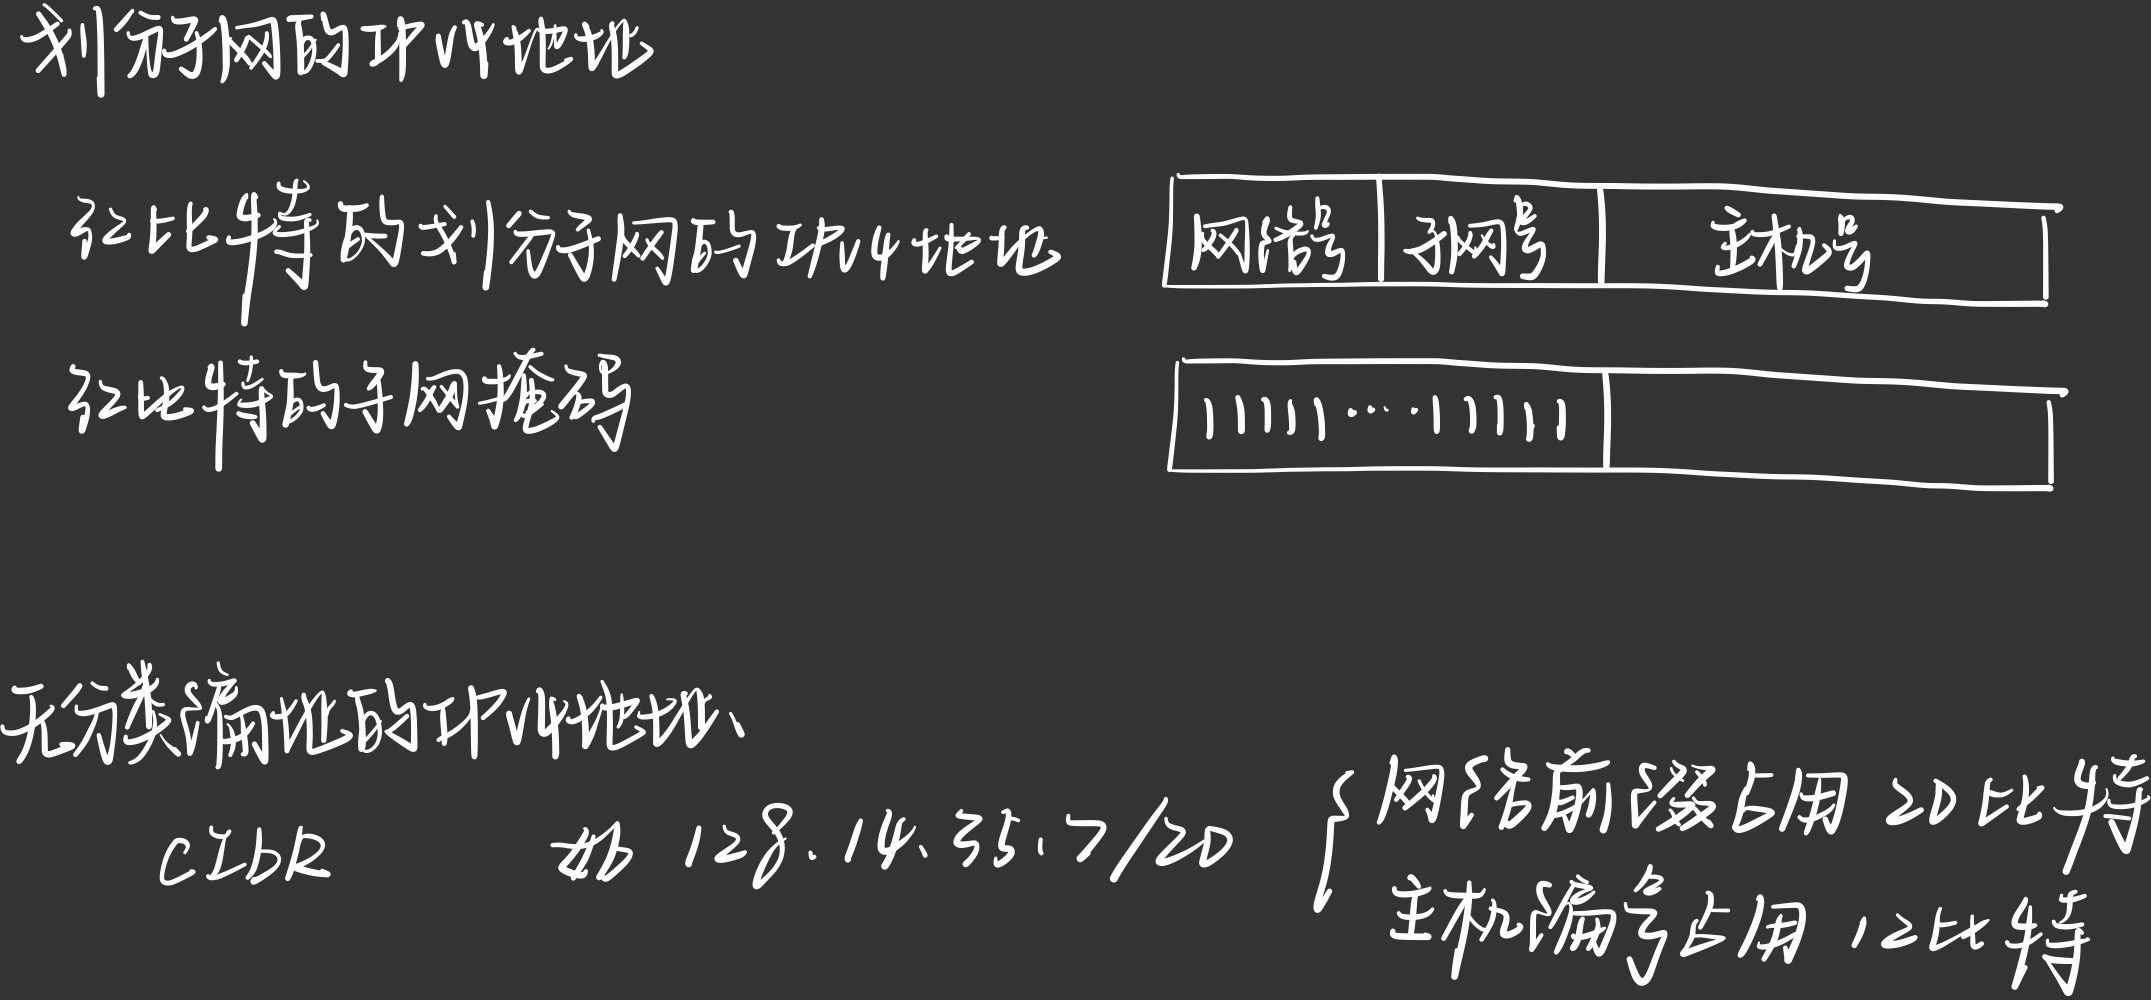 划分子网的IPV4地址
32比特的划分子网的IPV4地址
网络号 子网号 主机号
32比特的子网掩码
11111····11111
无分类编址的IPV4地址、
CIDR 如 128.14.35.7/20
网络前缀占用 20比特
主机编号占用 12比特